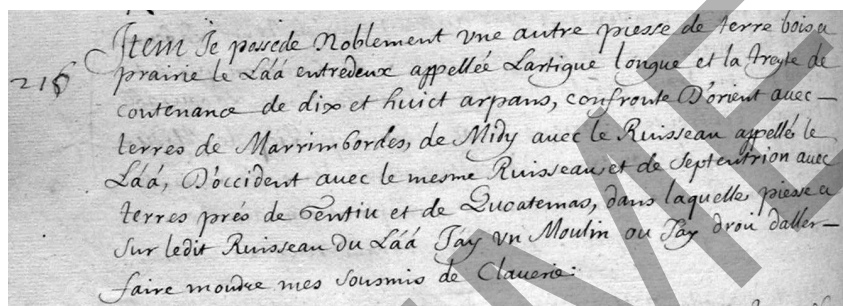 Item Je possede Noblement vne autre piesse de terre bois a
216 prairie le Láá entredeux appellée Lartigue longue et la treyte de
contenance de dix et huict arpans, confronte D'orient auec —
terres de Marrimbordes, de Midy auec le Ruisseau appellé le
Láá, D'occident auec le mesme Ruisseau, et de Septentrion auec
terres prés de Gentiu et de Ducatemas, dans laquelle piesse a
Sur ledit Ruisseau du Láá Jay vn Moulin ou Jay droit daller —
faire moudre mes Sousmis de Clauerie.